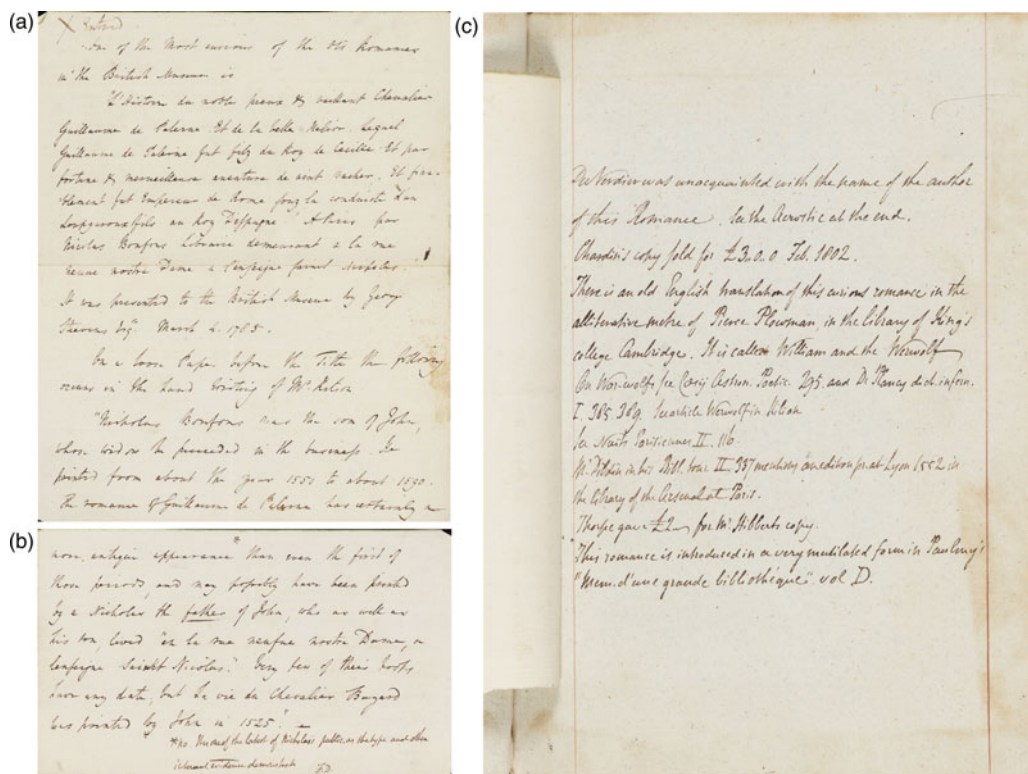 (a)
One of the most curious of the old Romances
in the British Museum is
"L'Histoire du noble preux & vaillant Chevalier
Guillaume de Palerne. Et de la belle Melior. Lequel
Guillaume de Palerne fut filz du Roy de Cecille. Et par
fortune & merveilleuse auenture deuint vacher. Et fina-
blement fut Empereur de Rome souz la conduicte dun
Loupgaroux filz au Roy Despagne" A Paris par
Nicolas Bonfons Libraire demeurant a la rue
neuue nostre Dame a l'enseigne sainct Nicolas.
It was presented to the British Museum by George
Steevens Esqr. March 2. 1765.
On a loose Paper before the Title the following
occurs in the hand writing of Mr
"Nicholas Bonfons was the son of John,
whose widow he succeeded in the business. He
printed from about the year 1550 to about 1590.
The romance of Guillaume de Palerne has certainly a
(b)
more antique appearance* than even the first of
those periods, and may possibly have been printed
by a Nicholas the father of John, who as well as
his son, lived "en la rue neufue nostre Dame, a
lenseigne Saint Nicolas." Very few of their books
have any date, but La vie du Chevalier Bayard
was printed by John in 1525".
*No. It is one of the latest of Nicholas's public. as the type and other
internal evidence demonstrate F.D.
(c)
Du Verdier was unacquainted with the name of the author
of this Romance. See the Acrostic at the end.
Chardin's copy sold for £3.0.0 Feb. 1802.
There is an old English translation of this curious romance in the
alliterative metre of Pierce Plowman, in the library of King's
college Cambridge. It is called William and the Werwolf
On War-wolfs see Cæsij Astron. Poetic. 295. and De Plancy dict. infern.
I. 385. 389. See article Werwolf in Kilian
See Nuits Parisiennes II. 116.
Mr. Dibdin in his Bibl. tour II. 337 mentions an edition pr. at Lyon 1552 in
the library of the Arsenal at Paris.
Thorpe gave £2 for Mr. Hibberts copy.
This romance is introduced in a very mutilated form in Paulmy's
"Mem. d'une grande bibliothéque". vol D.